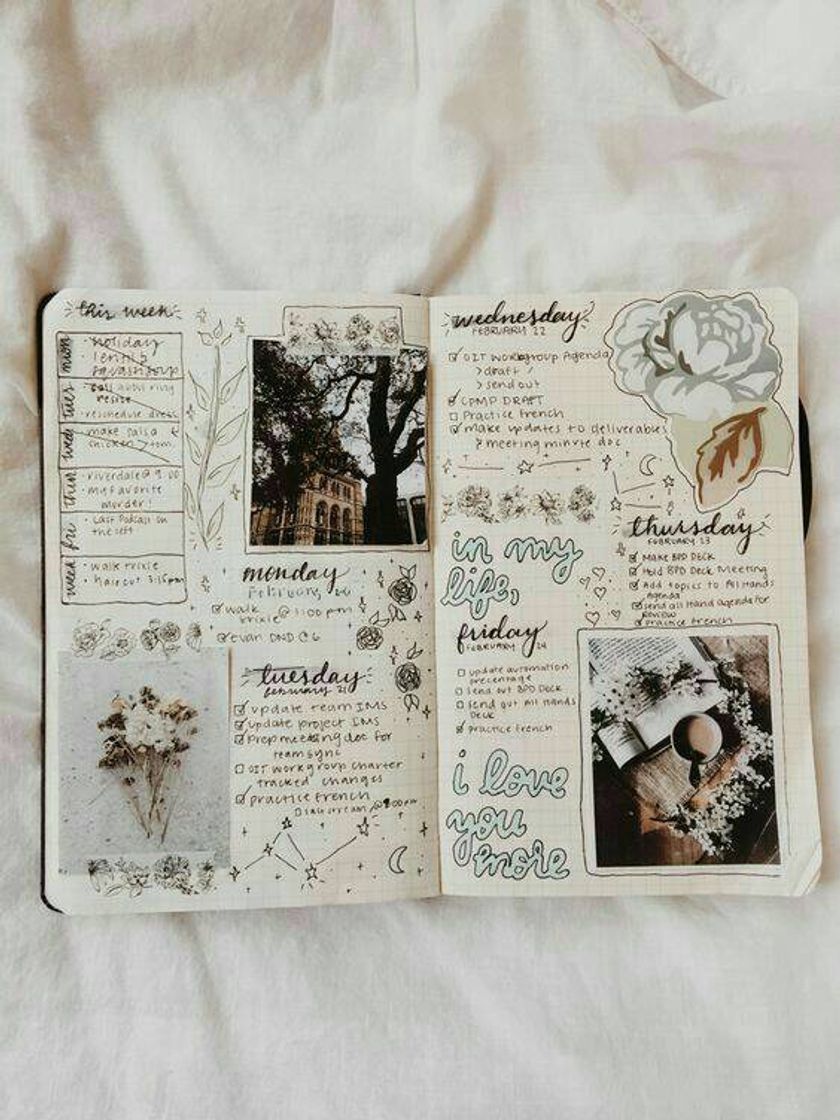 this week
mon
holiday
lentil &
squash soup
tues
call about ring
resize
reschedule dress
wed
make salsa &
chicken
thur
riverdale @ 9:00
my favorite
murder!
fri
Last Podcast on
the left
week
walk trixie
haircut 3:15pm
monday
February
walk
trixie @ 1:00 pm
evan DND @ 6
tuesday
february 21
update team IMS
update project IMS
prep meeting doc for
team sync
OIT workgroup charter
tracked changes
practice french
wednesday
FEBRUARY 22
OIT workgroup Agenda
> draft
> send out
CPMP DRAFT
Practice french
make updates to deliverables
& meeting minute doc
in my
life,
thursday
FEBRUARY 23
Make BPD DECK
Hold BPD Deck Meeting
Add topics to All Hands
Agenda
send all Hand agenda for
Review
practice french
friday
FEBRUARY 24
update automation
precentage
send out BPD Deck
send out All Hands
Deck
practice french
i love
you
more